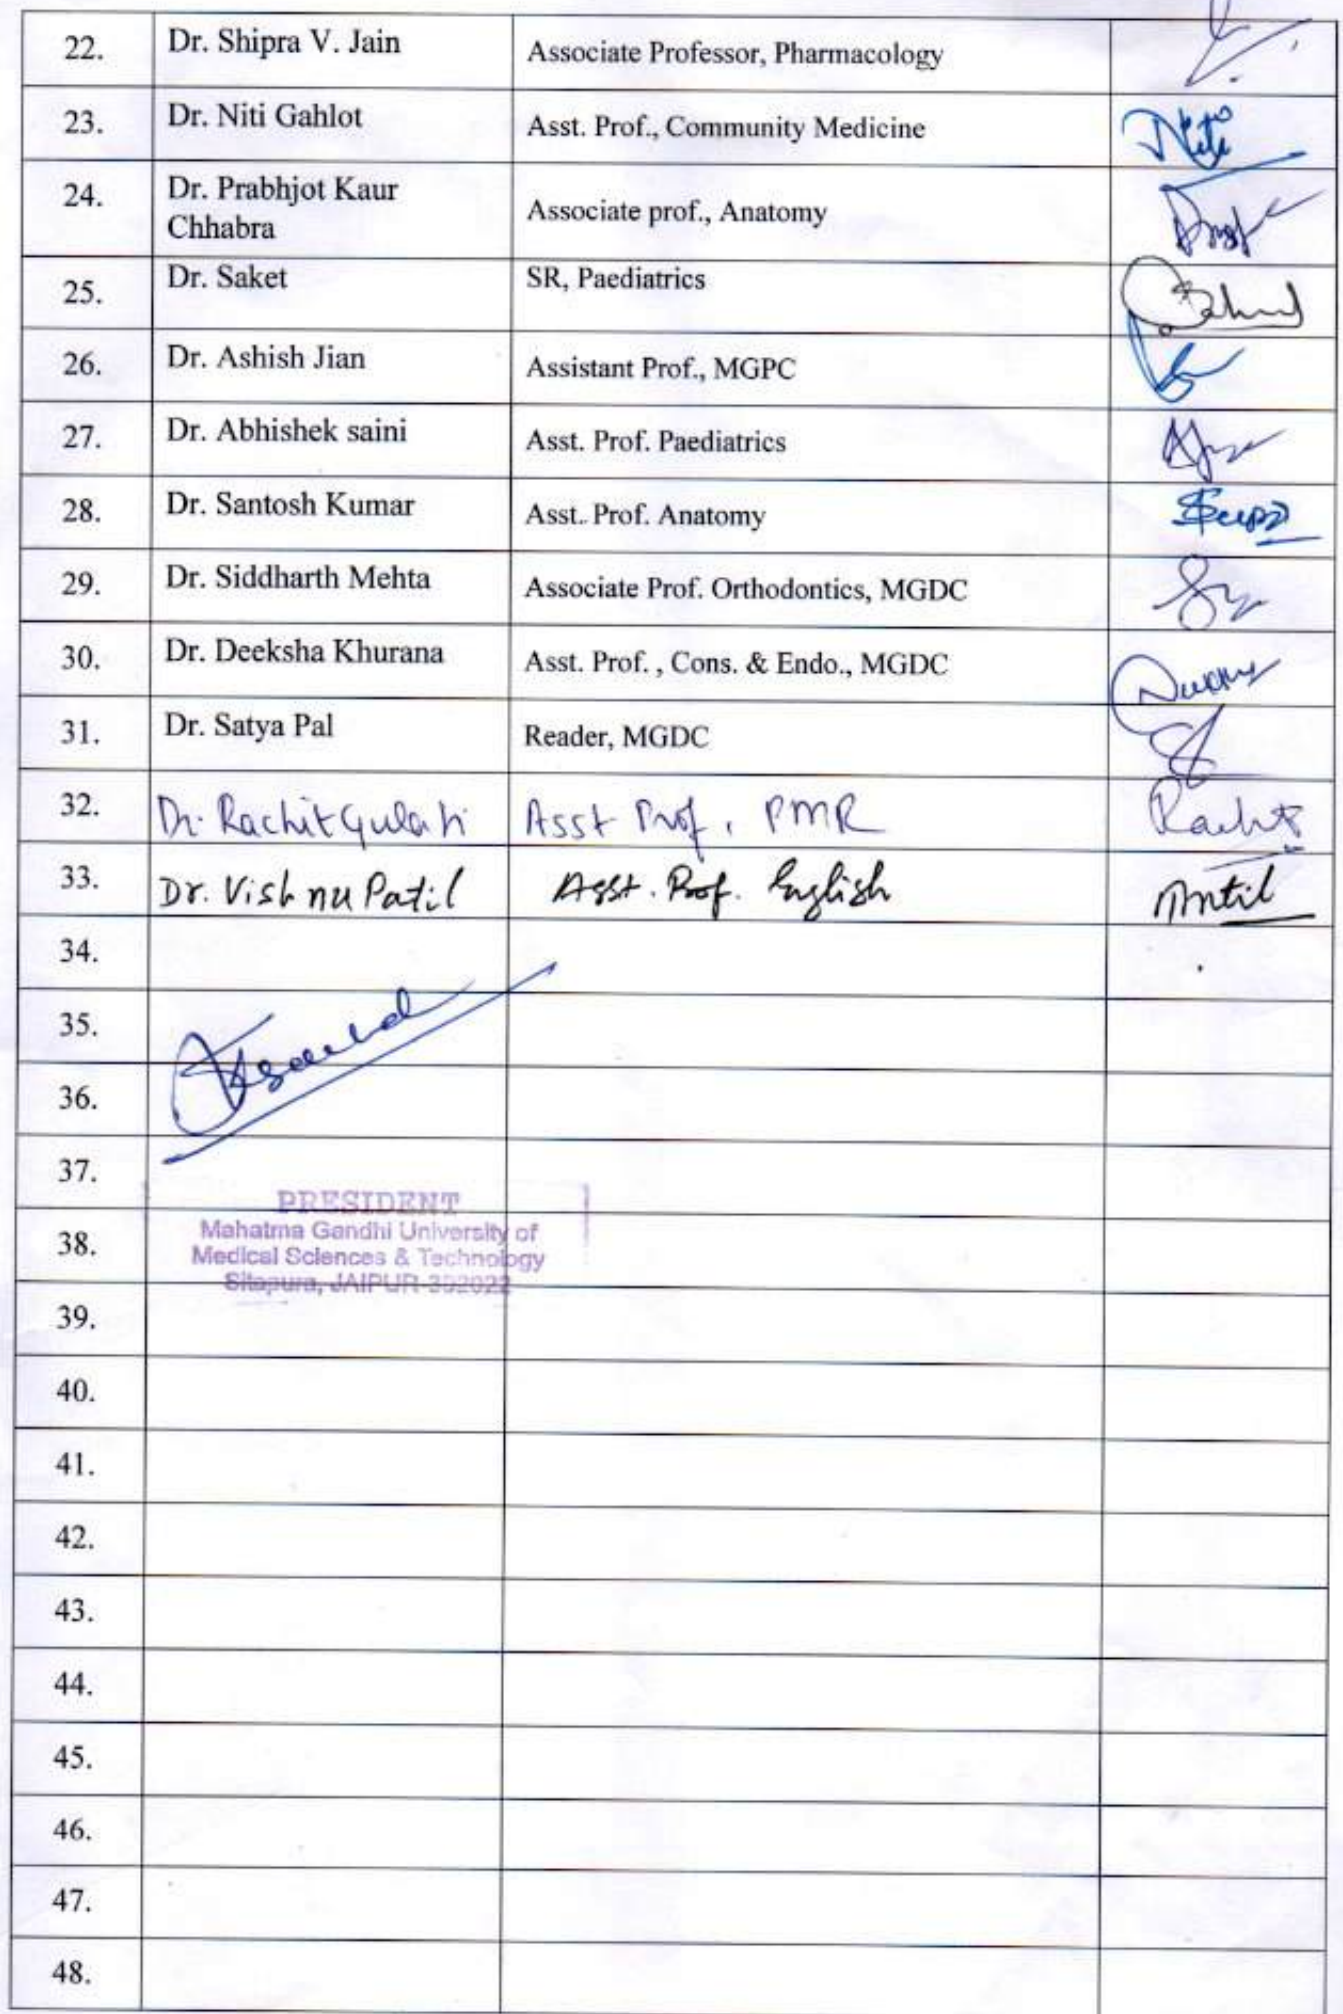 22. Dr. Shipra V. Jain Associate Professor, Pharmacology
23. Dr. Niti Gahlot Asst. Prof., Community Medicine Niti
24. Dr. Prabhjot Kaur
Chhabra Associate prof., Anatomy
25. Dr. Saket SR, Paediatrics
26. Dr. Ashish Jian Assistant Prof., MGPC
27. Dr. Abhishek saini Asst. Prof. Paediatrics
28. Dr. Santosh Kumar Asst. Prof. Anatomy
29. Dr. Siddharth Mehta Associate Prof. Orthodontics, MGDC
30. Dr. Deeksha Khurana Asst. Prof. , Cons. & Endo., MGDC
31. Dr. Satya Pal Reader, MGDC
32. Dr. Rachit Gulati Asst Prof, PMR
33. Dr. Vishnu Patil Asst. Prof. English
34.
35.
36.
37.
PRESIDENT
Mahatma Gandhi University of
38.
Medical Sciences & Technology
Sitapura, JAIPUR-302022
39.
40.
41.
42.
43.
44.
45.
46.
47.
48.